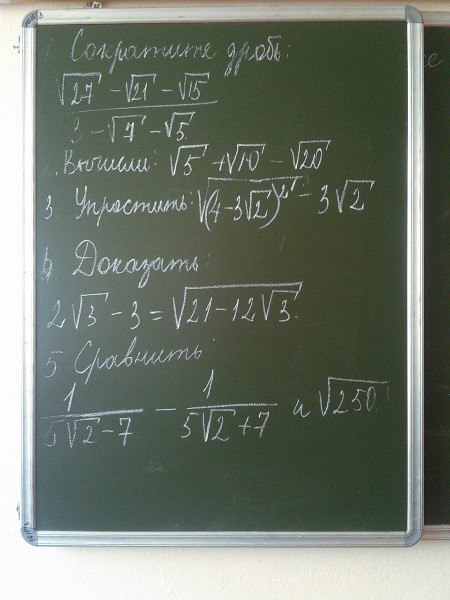 1. Сократите дробь:
(√27 − √21 − √15) / (3 − √7 − √5)
2. Вычисли: √5 + √10 − √20
3 Упростить: √(4−3√2)² − 3√2
4 Доказать:
2√3 − 3 = √(21−12√3).
5 Сравнить
1/(5√2−7) − 1/(5√2+7) и √250